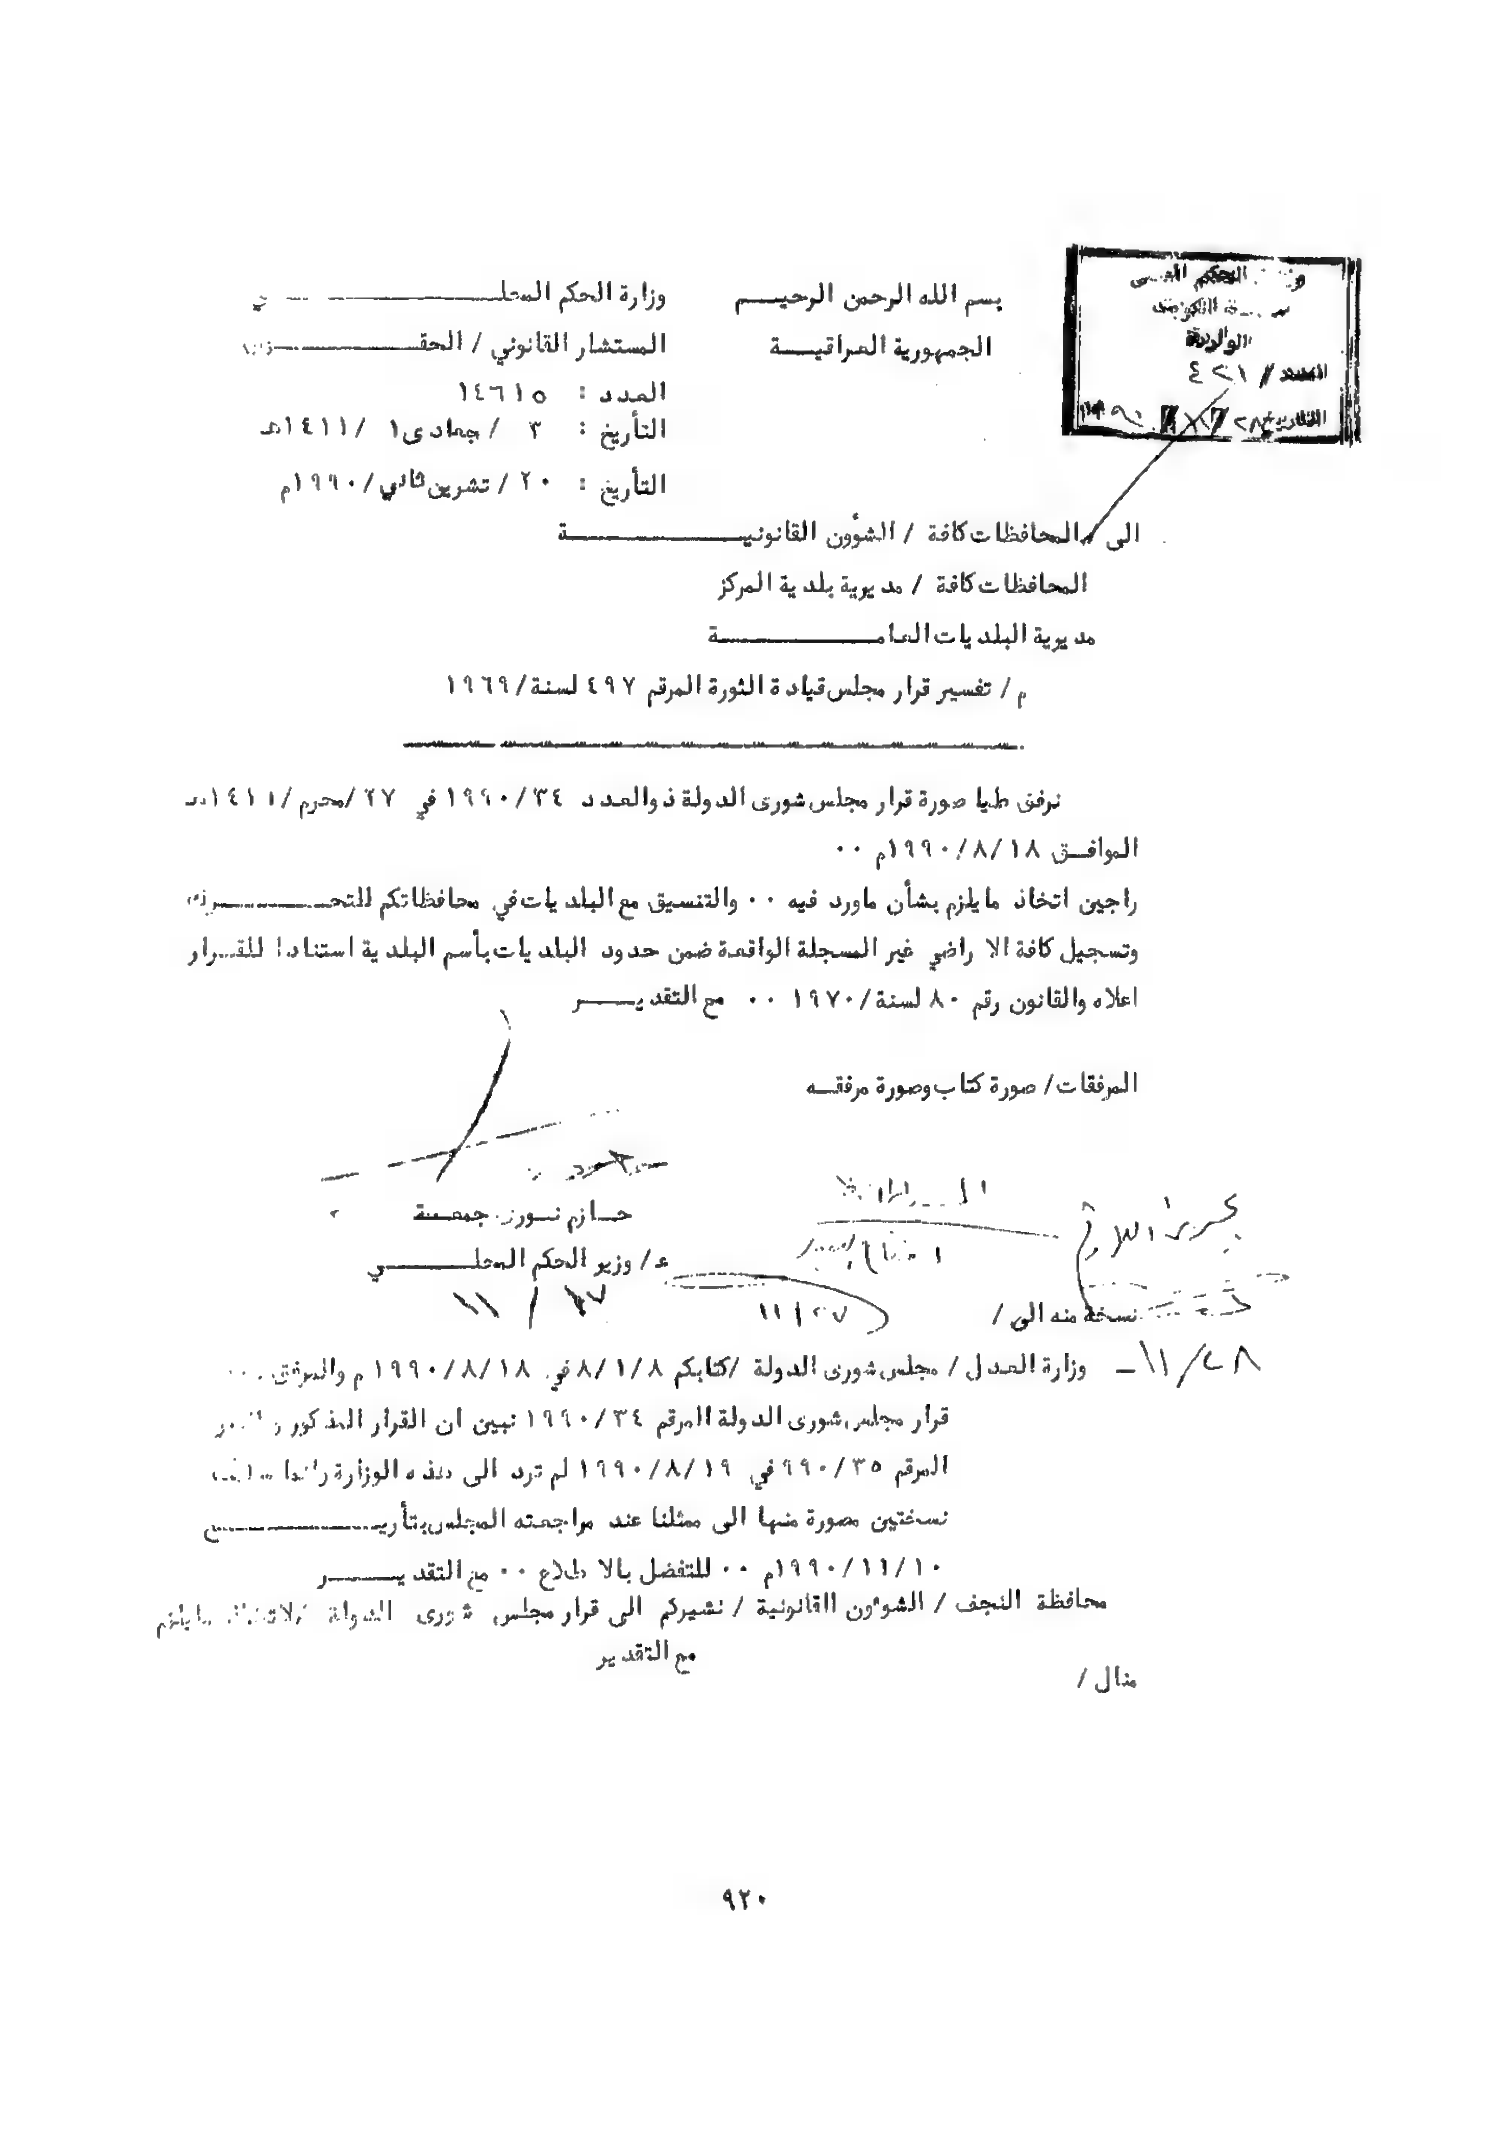 بسم الله الرحمن الرحيم
الجمهورية العراقية
وزارة الحكم المحلي
المستشار القانوني / الحقوق
العدد : ١٤٦١٥
التأريخ : ٣ / جمادى١ /١٤١١هـ
التأريخ : ٢٠ / تشرين ثاني/١٩٩٠م
الواردة
العدد / ٤٢١
التاريخ ٢٨
الى / المحافظات كافة / الشؤون القانونية
المحافظات كافة / مديرية بلدية المركز
مديرية البلديات العامة
م / تفسير قرار مجلس قيادة الثورة المرقم ٤٩٧ لسنة/١٩٦٩
نرفق طيا صورة قرار مجلس شورى الدولة ذو العدد ١٩٩٠/٣٤ في ٢٧ /محرم /١٤١١هـ
الموافق ١٩٩٠/٨/١٨م ٠٠
راجين اتخاذ مايلزم بشأن ماورد فيه ٠٠ والتنسيق مع البلديات في محافظاتكم للتحرك
وتسجيل كافة الاراضي غير المسجلة الواقعة ضمن حدود البلديات بأسم البلدية استنادا للقرار
اعلاه والقانون رقم ٨٠ لسنة/١٩٧٠ ٠٠ مع التقدير
المرفقات/ صورة كتاب وصورة مرفقه
حازم نوري جمعة
ع/ وزير الحكم المحلي
٢٧ / ١١
١١/٢٧
نسخة منه الى /
١١/٢٨
وزارة العدل / مجلس شورى الدولة /كتابكم ٨/١/٨ في ١٩٩٠/٨/١٨ م والمرفق
قرار مجلس شورى الدولة المرقم ١٩٩٠/٣٤ نبين ان القرار المذكور
المرقم ٩٩٠/٣٥ في ١٩٩٠/٨/١٩ لم ترد الى هذه الوزارة
نسختين مصورة منها الى ممثلنا عند مراجعته المجلس بتأريخ
١٩٩٠/١١/١٠م ٠٠ للتفضل بالاطلاع ٠٠ مع التقدير
محافظة النجف / الشوءون القانونية / نشيركم الى قرار مجلس شورى الدولة لاتخاذ مايلزم
مع التقدير
منال /
٩٢٠